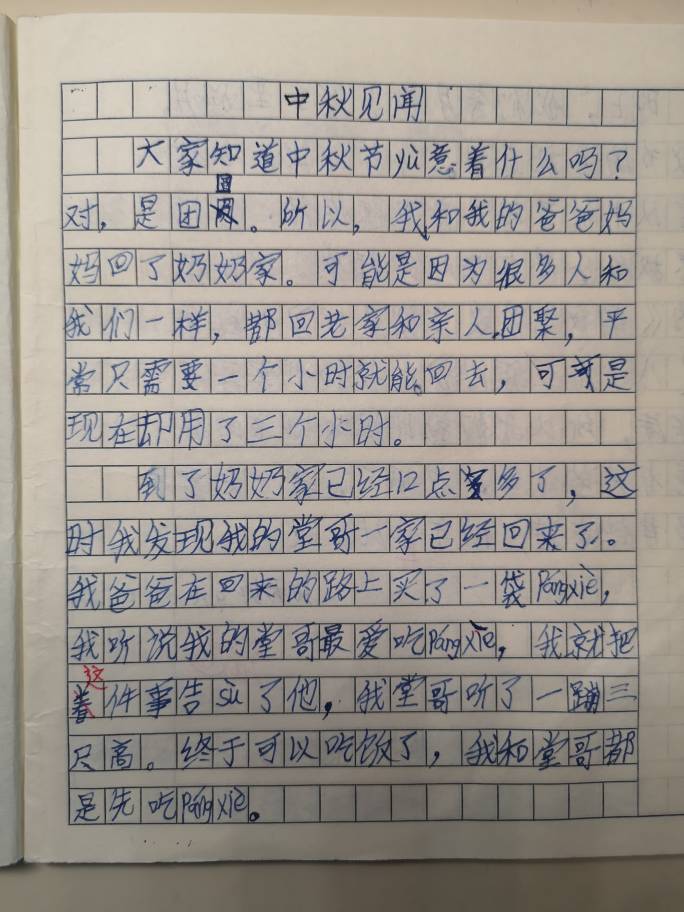 中秋见闻
大家知道中秋节yù惹着什么吗？
对，是团圆。所以，我和我的爸爸妈
妈回了奶奶家。可能是因为很多人和
我们一样，都回老家和亲人团聚，平
常只需要一个小时就能回去，可是
现在却用了三个小时。
到了奶奶家已经口点多了，这
时我发现我的堂哥一家已经回来了。
我爸爸在回来的路上买了一袋Pángxiè，
我听说我的堂哥最爱吃Pángxiè，我就把
这件事告sù了他，我堂哥听了一蹦三
尺高。终于可以吃饭了，我和堂哥都
是先吃Pángxiè。